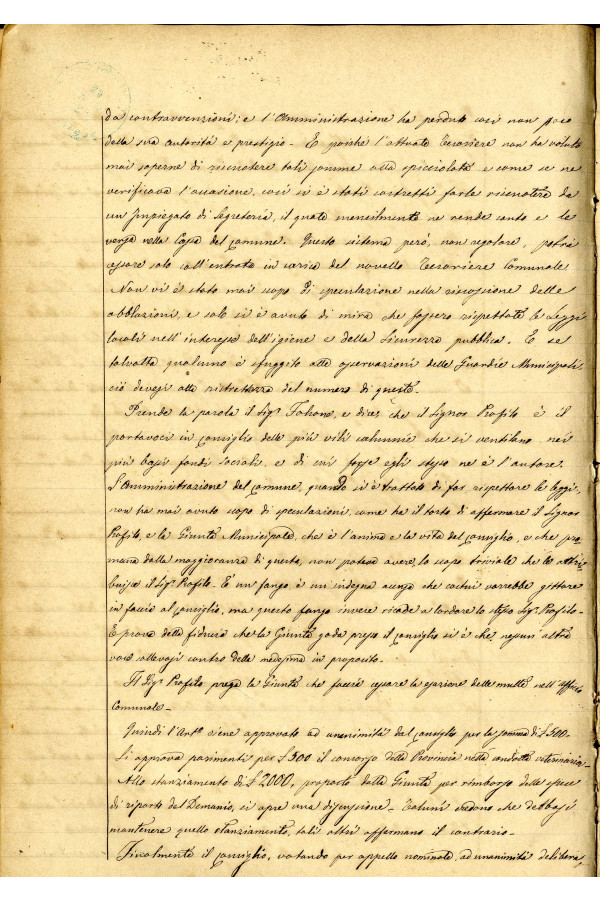 da contravvenzioni; e l'Amministrazione ha perduto così non poco
della sua autorità e prestigio - E poichè l'attuale Tesoriere non ha voluto
mai saperne di riscuotere tali somme alla spicciolata e come se ne
verificava l'occasione, così si è stati costretti farle riscuotere da
un Impiegato di Segreteria, il quale mensilmente ne rende conto e le
versa nella Cassa del Comune. Questo sistema però, non regolare, potrà
cessare solo coll'entrata in carica del novello Tesoriere Comunale
Non vi è stato mai scopo di speculazione nella riscossione delle
oblazioni, e solo si è avuto di mira che fossero rispettate le Leggi
locali nell'interesse dell'igiene e della sicurezza pubblica. E se
talvolta qualcuno è sfuggito alle osservazioni delle Guardie Municipali,
ciò devesi alla ristrettezza del numero di queste -
Prende la parola il Sig.r e dice, che il Signor Profilo è il
portavoci in Consiglio delle più vili calunnie che si ventilano nei
più bassi fondi sociali, e di cui forse egli stesso ne è l'autore.
L'Amministrazione del Comune, quando si è trattato di far rispettare le leggi,
non ha mai avuto scopo di speculazioni, come ha il torto di affermare il Signor
Profilo, e la Giunta Municipale, che è l'anima e la vita del Consiglio, e che pro=
mana dalla maggioranza di questo, non poteva avere, lo scopo triviale che le attri=
buisce il Sig.r Profilo. E' un fango è un indegna accusa che costui vorrebbe gittare
in faccia al Consiglio, ma questo fango invece ricade a lordare lo stesso Sig.r Profilo -
E prova della fiducia che la Giunta gode presso il Consiglio si è che nessun'altra
voce sollevasi contro della medesima in proposito -
Il Sig.r Profilo, prega la Giunta che faccia cessare la esazione delle multe nell'Ufficio
Comunale -
Quindi l'Art.o viene approvato ad unanimità dal Consiglio per la somma di £ 500 -
Si approva parimenti per £ 300 il concorso della Provincia nella condotta veterinaria -
Allo stanziamento di £ 2000, proposto dalla Giunta per rimborso delle spese
di riparto del Demanio, si apre una discussione - Taluni credono che debbasi
mantenere quello stanziamento, tali altri affermano il contrario -
Finalmente il Consiglio, votando per appello nominale, ad unanimità delibera,